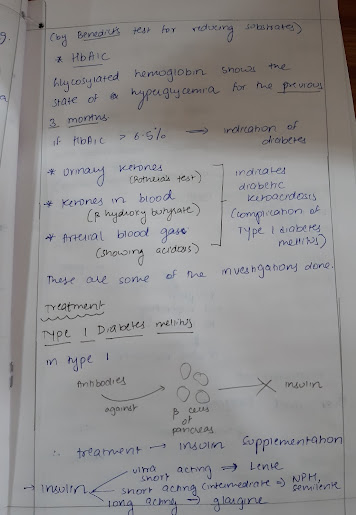 (by Benedict's test for reducing substrates)
* HbA1C
Glycosylated hemoglobin shows the
state of hyperglycemia for the previous
3 months
if HbA1c > 6.5% → indication of
diabetes
* Urinary ketones
(Rothera's test)
* Ketones in blood
(β hydroxy butyrate)
* Arterial blood gas
(showing acidosis)
Indicates
diabetic
ketoacidosis
(complication of
Type 1 diabetes
mellitus)
These are some of the investigations done.
Treatment
Type 1 Diabetes mellitus
in type 1
Antibodies
against
β cells
of
pancreas
insulin
∴ treatment → insulin supplementation
→ insulin
ultra
short acting ⇒ Lente
short acting (intermediate ⇒ NPH,
semilente
long acting → glargine